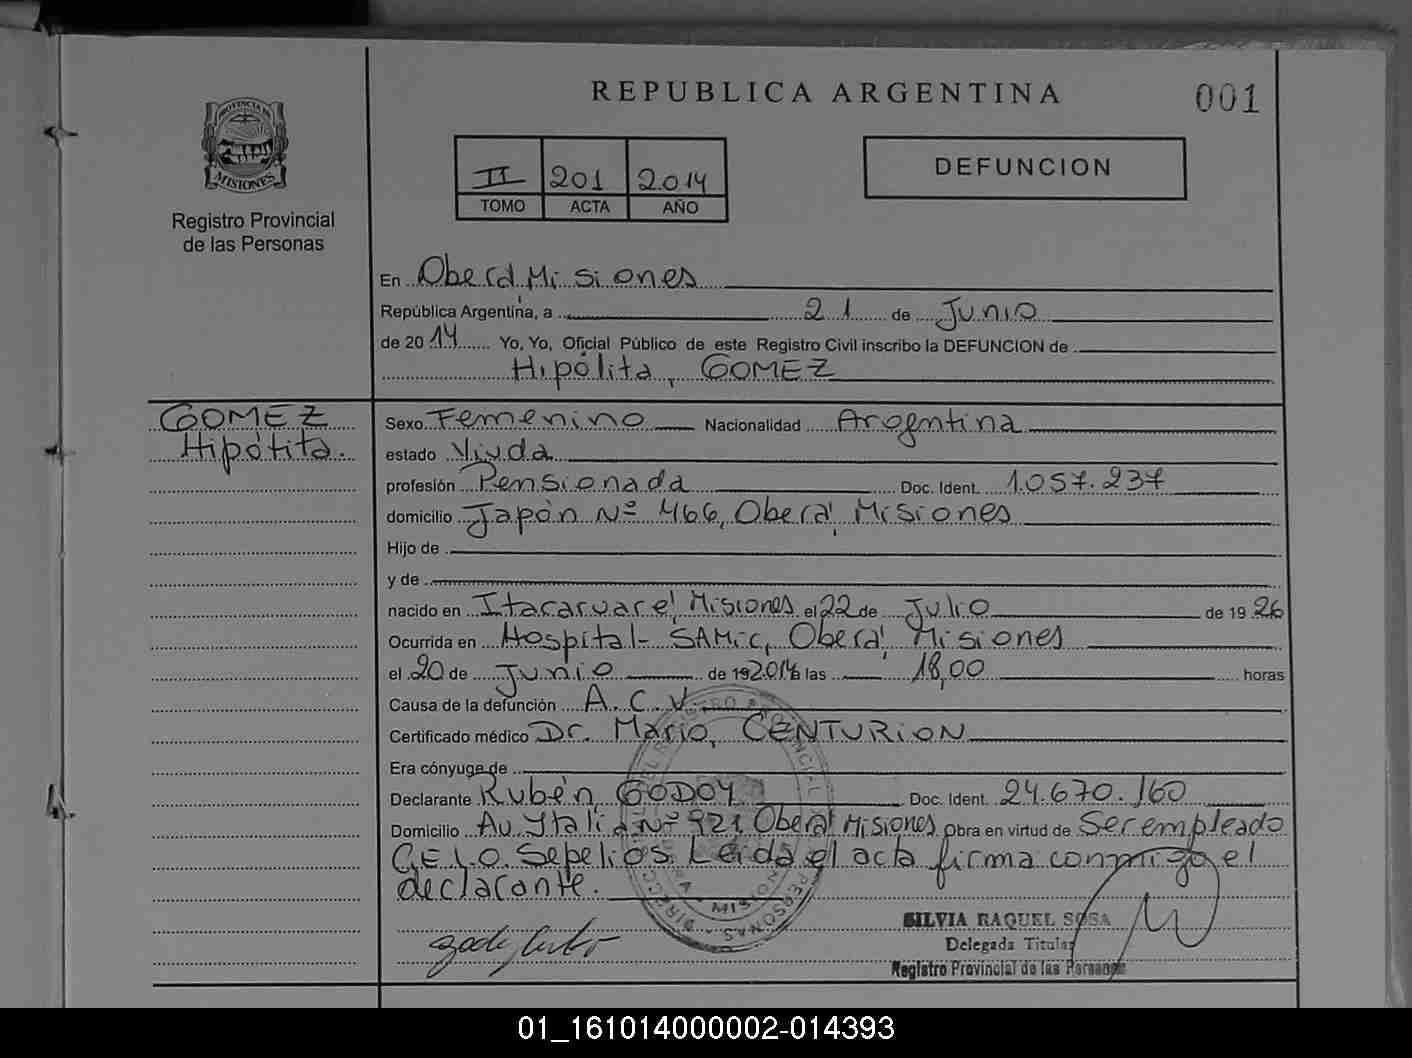 REPUBLICA ARGENTINA
001
PROVINCIA DE
MISIONES
Registro Provincial
de las Personas
II 201 2.014
TOMO ACTA AÑO
DEFUNCION
En Oberá, Misiones
República Argentina, a 21 de Junio
de 20 14 Yo, Yo, Oficial Público de este Registro Civil inscribo la DEFUNCION de
Hipólita, GOMEZ
GOMEZ
Hipótita.
Sexo Femenino Nacionalidad Argentina
estado Viuda
profesión Pensionada Doc. Ident. 1.057.237
domicilio Japón Nº 466, Oberá, Misiones
Hijo de
y de
nacido en Itacaruaré, Misiones el 22 de Julio de 19 26
Ocurrida en Hospital- SAMiC, Oberá, Misiones
el 20 de Junio de 2014 a las 18,00 horas
Causa de la defunción A.C.V.
Certificado médico Dr. Mario, CENTURION
Era cónyuge de
Declarante Rubén, GODOY Doc. Ident. 24.670.160
Domicilio Av. Italia Nº 921, Oberá, Misiones Obra en virtud de Ser empleado
C.E.L.O. Sepelios. Leida el acta firma conmigo el
declarante.
SILVIA RAQUEL SOSA
Delegada Titular
Registro Provincial de las Personas
01_161014000002-014393